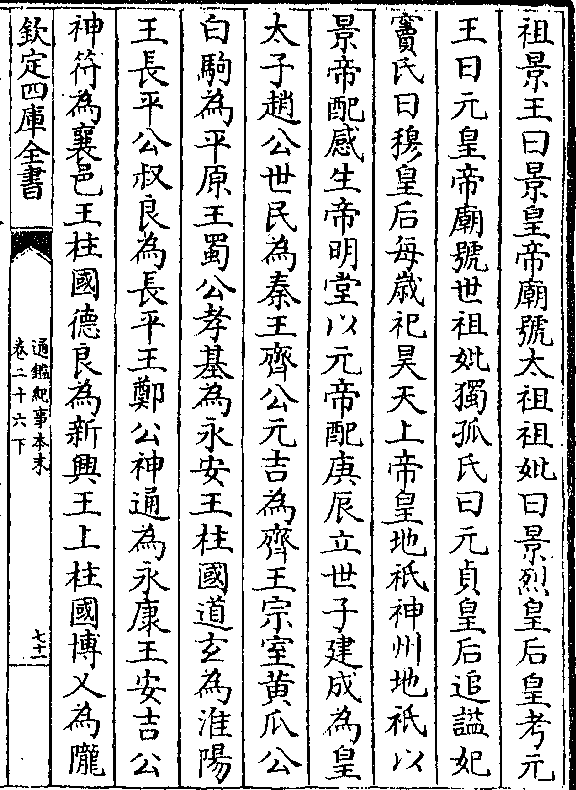 祖景王曰景皇帝廟號太祖祖妣曰景烈皇后皇考元
王曰元皇帝廟號世祖妣獨孤氏曰元貞皇后追謚妃
竇氏曰穆皇后每歲祀昊天上帝皇地祇神州地祇以
景帝配感生帝明堂以元帝配庚辰立世子建成為皇
太子趙公世民為秦王齊公元吉為齊王宗室黄瓜公
白駒為平原王蜀公孝基為永安王柱國道玄為淮陽
王長平公叔良為長平王鄭公神通為永康王安吉公
神符為襄邑王柱國德良為新興王上柱國博乂為隴
欽定四庫全書
通鑑紀事本末
卷二十六下
七十一